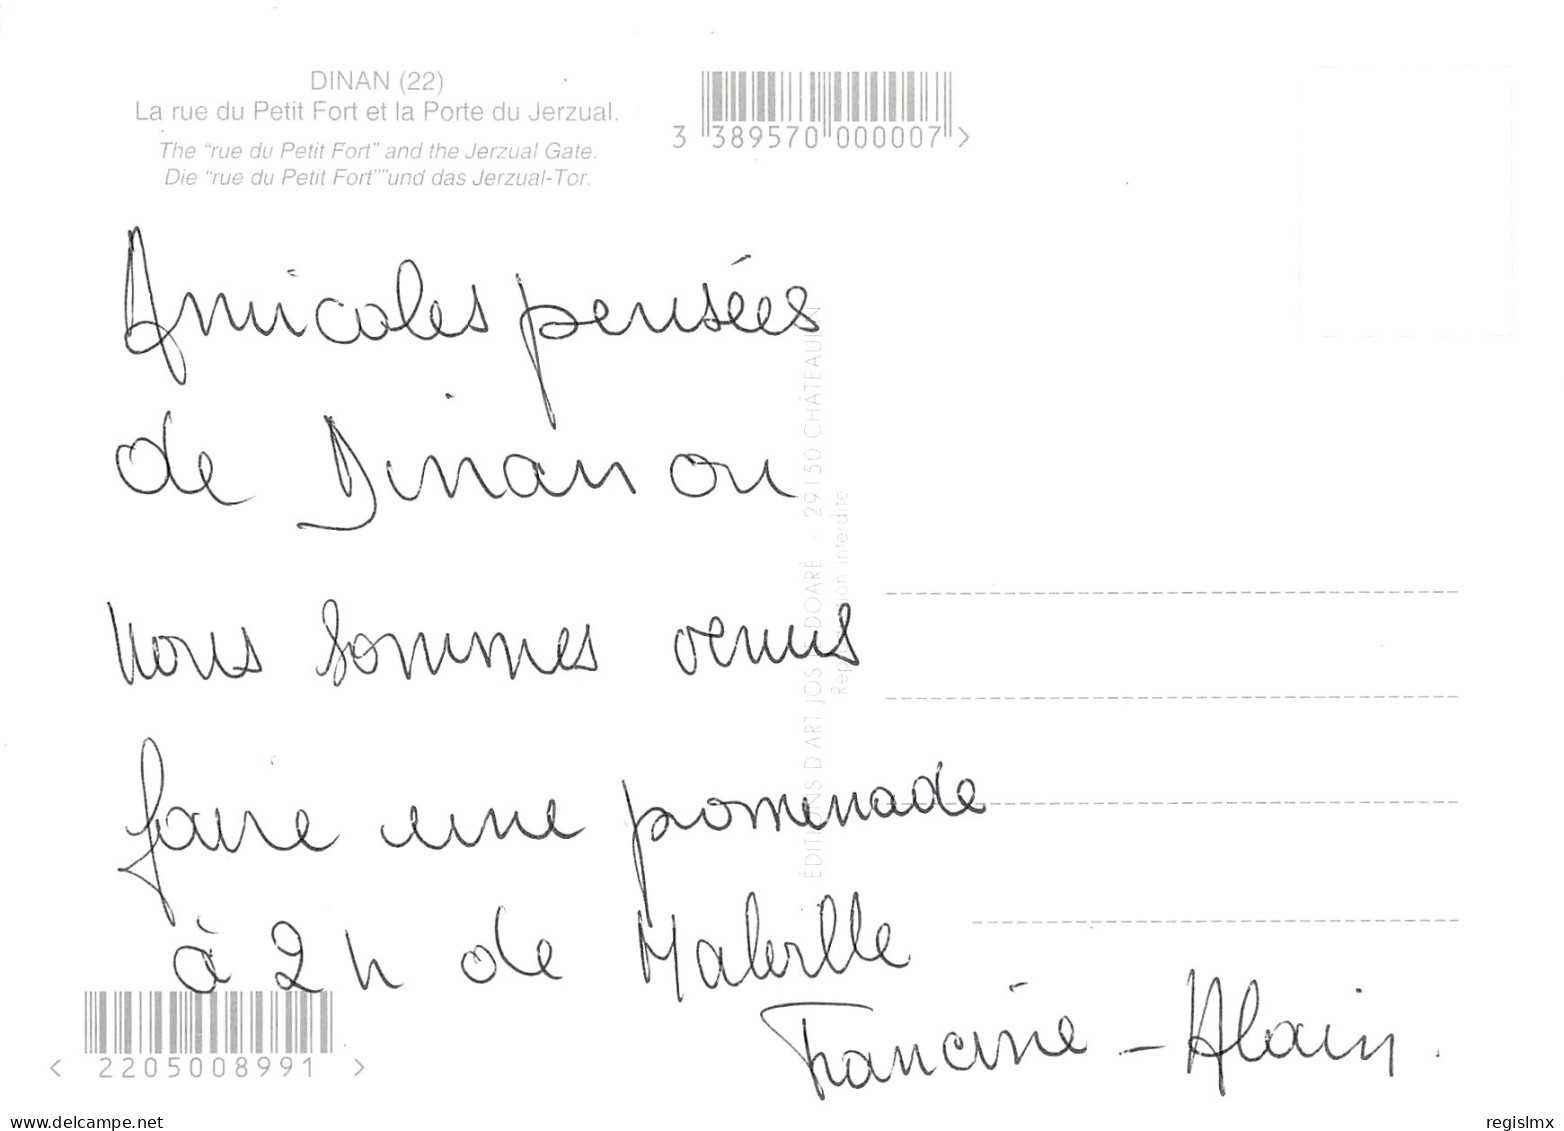 DINAN (22)
La rue du Petit Fort et la Porte du Jerzual.
The "rue du Petit Fort" and the Jerzual Gate.
Die "rue du Petit Fort""und das Jerzual-Tor.
3 389570 000007 >
Amicales pensées
de Dinan ou
nous sommes venus
faire une promenade
à 2h de Malville
Francine - Alain.
ÉDITIONS D'ART JOS DOARÉ · 29150 CHÂTEAULIN
Reproduction interdite
< 2205008991 >
www.delcampe.net
regislmx